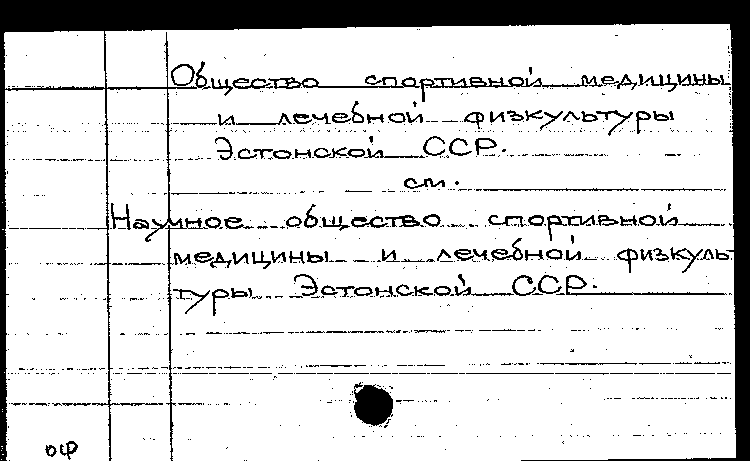 Общество спортивной медицины
и лечебной физкультуры
Эстонской ССР.
см.
Научное общество спортивной
медицины и лечебной физкуль-
туры Эстонской ССР.
оф